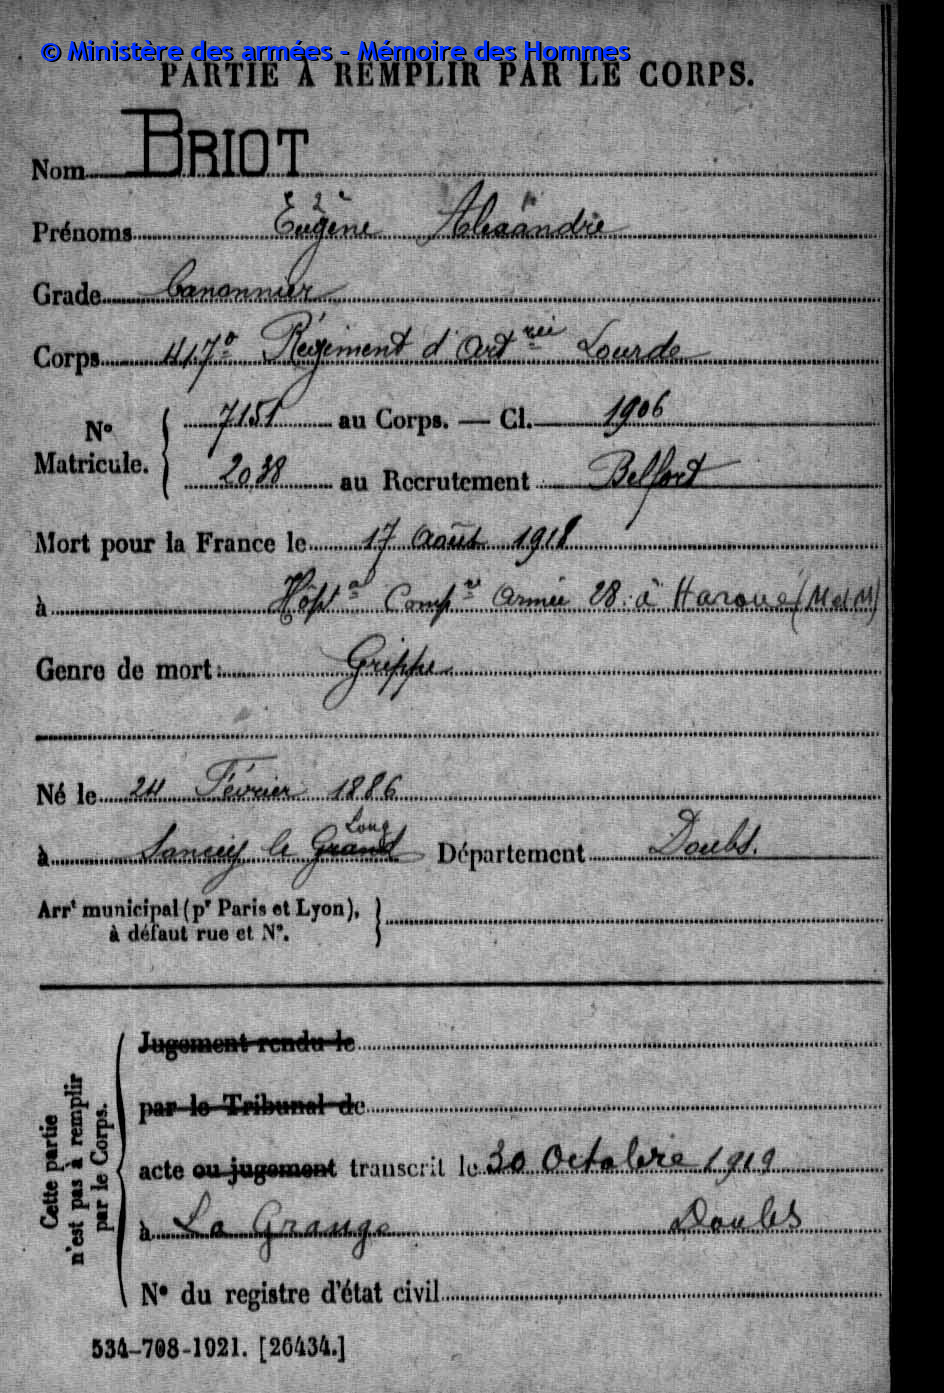 © Ministère des armées - Mémoire des Hommes
PARTIE À REMPLIR PAR LE CORPS.
Nom BRIOT
Prénoms Eugène Alexandre
Grade Canonnier
Corps 417e Régiment d'Artrie Lourde
N° Matricule. { 7151 au Corps. — Cl. 1906
2038 au Recrutement Belfort
Mort pour la France le 17 Août 1918
à Hôpal Compre Armée 28 à Haroué (M et M)
Genre de mort Grippe
Né le 24 Février 1886
Long
à Sancey le Grand Département Doubs.
Arrt municipal (pr Paris et Lyon),
à défaut rue et N°.
Cette partie
n'est pas à remplir
par le Corps.
Jugement rendu le
par le Tribunal de
acte ou jugement transcrit le 30 Octobre 1919
à La Grange Doubs
N° du registre d'état civil
534-708-1921. [26434.]